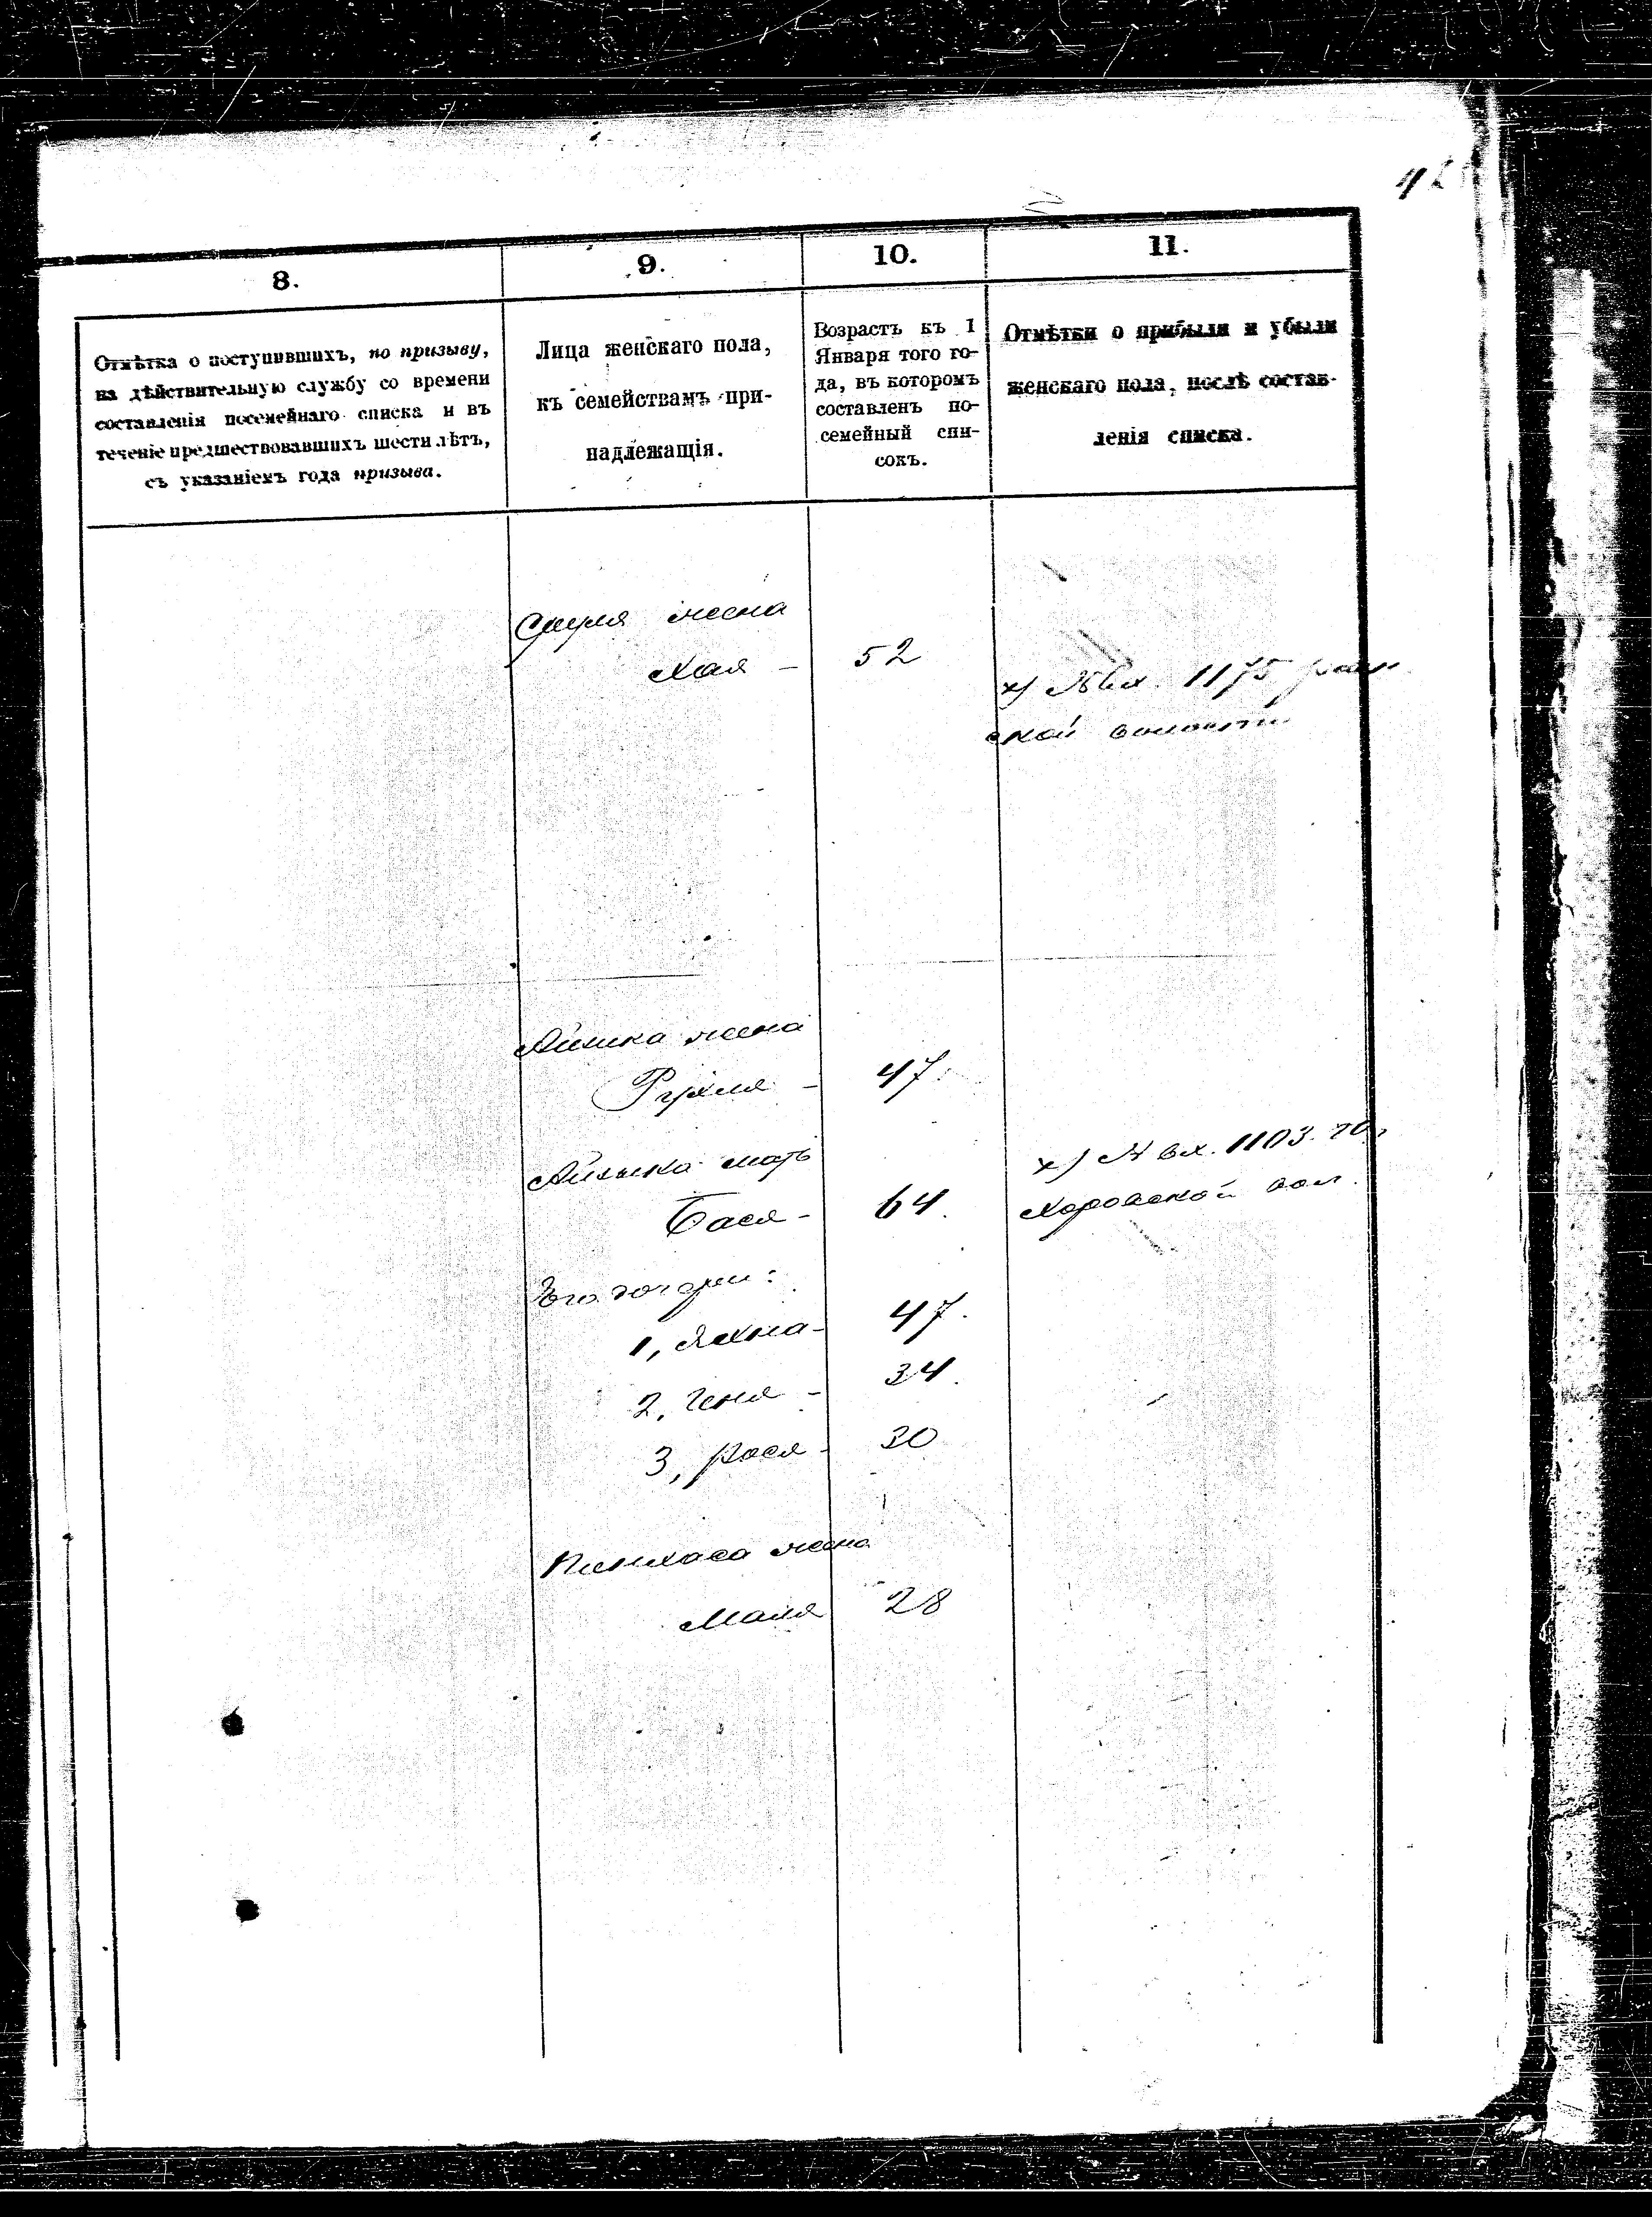 42
8.
9.
10.
11.
Отмѣтка о поступившихъ, по призыву,
на дѣйствительную службу со времени
составленія посемейнаго списка и въ
теченіе предшествовавшихъ шести лѣтъ,
съ указаніемъ года призыва.
Лица женскаго пола,
къ семействамъ при-
надлежащія.
Возрастъ къ 1
Января того го-
да, въ которомъ
составленъ по-
семейный спи-
сокъ.
Отмѣтки о прибыли и убыли
женскаго пола, послѣ состав-
ленія списка.
Сруля жена
Хая – 52
х) № вх. 1175
ской волости
жена
Рухля – 47.
мать
Бася – 64.
х) № вх. 1103.
Его дочери:
1, Яхна – 47.
2, Геня – 34.
3, Рося – 30
Пинхаса жена
Маля 28